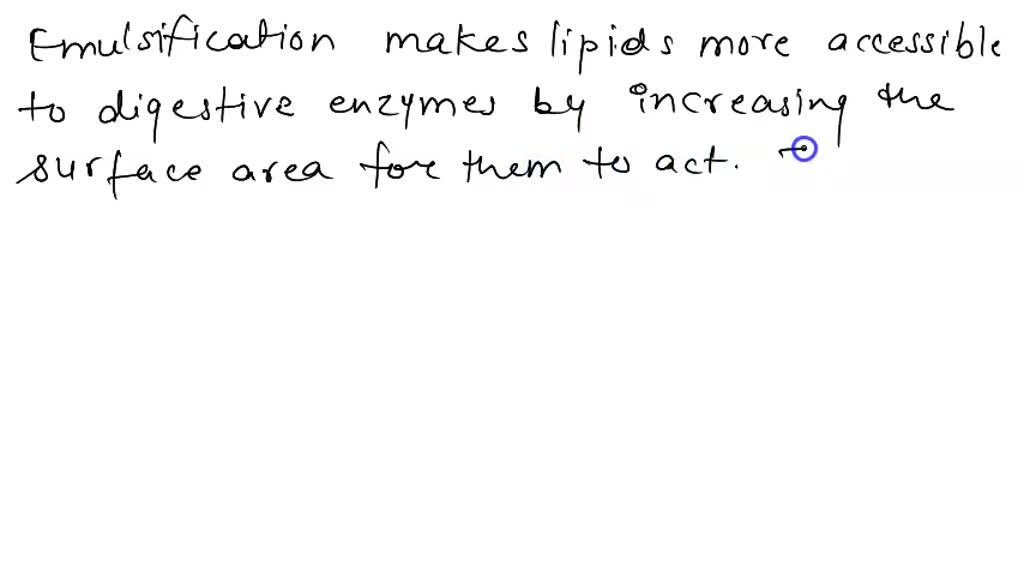 Emulsification makes lipids more accessible
to digestive enzymes by increasing the
surface area for them to act.